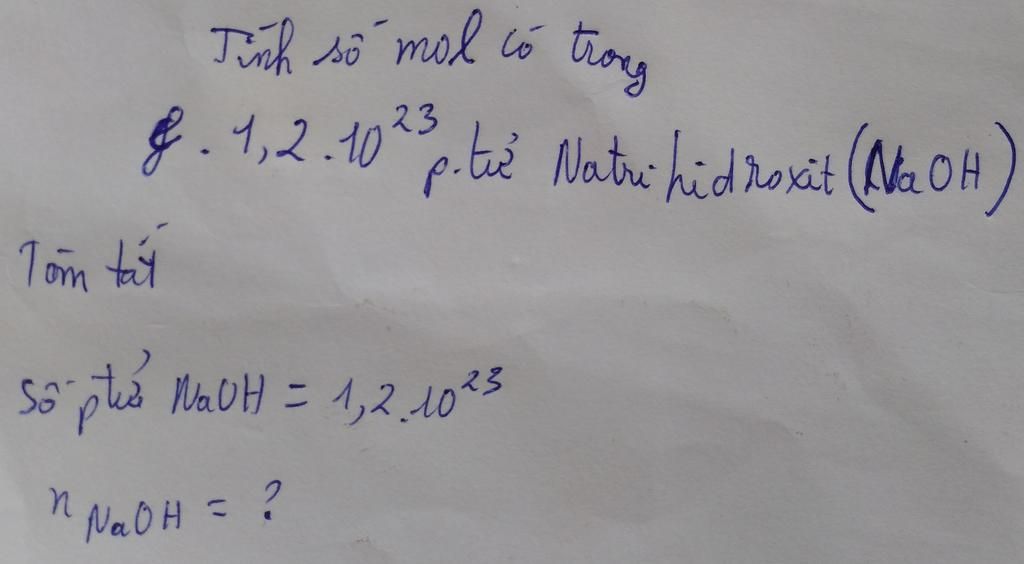 Tính số mol có trong
g. 1,2.10²³ p.tử Natri hidroxit (NaOH)
Tóm tắt
Số p.tử NaOH = 1,2.10²³
n NaOH = ?